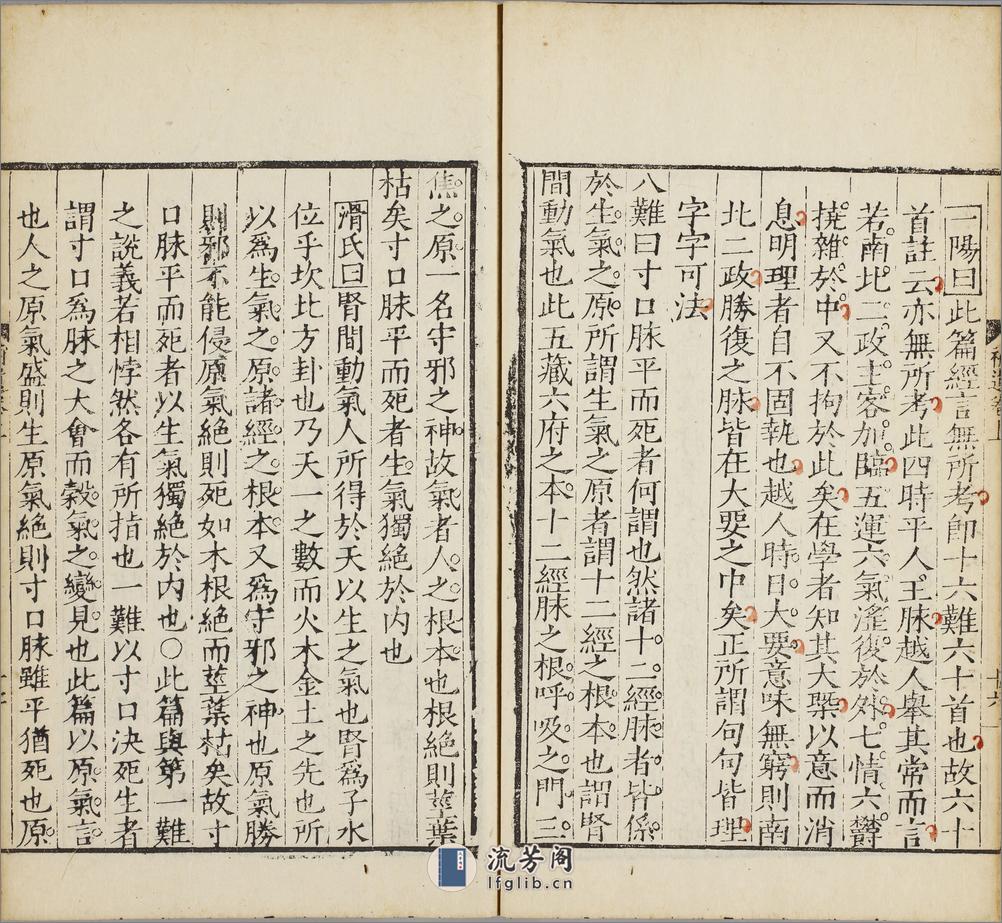 一陽曰此篇經言無所考卽十六難六十首也故六十
首註云亦無所考此四時平人王脉越人舉其常而言
若南北二政主客加臨五運六氣滛復於外七情六欝
撓雜於中又不拘於此矣在學者知其大槩以意而消
息明理者自不固執也越人時日大要意味無窮則南
北二政勝復之脉皆在大要之中矣正所謂句句皆理
字字可法
八難曰寸口脉平而死者何謂也然諸十二經脉者皆係
於生氣之原所謂生氣之原者謂十二經之根本也謂腎
間動氣也此五藏六府之本十二經脉之根呼吸之門三
焦之原一名守邪之神故氣者人之根本也根絶則莖葉
枯矣寸口脉平而死者生氣獨絶於内也
滑氏曰腎間動氣人所得於天以生之氣也腎爲子水
位乎坎北方卦也乃天一之數而火木金土之先也所
以爲生氣之原諸經之根本又爲守邪之神也原氣勝
則邪不能侵原氣絶則死如木根絶而莖葉枯矣故寸
口脉平而死者以生氣獨絶於内也○此篇與第一難
之說義若相悖然各有所指也一難以寸口決死生者
謂寸口爲脉之大會而穀氣之變見也此篇以原氣言
也人之原氣盛則生原氣絶則寸口脉雖平猶死也原
流芳阁
lfglib.cn